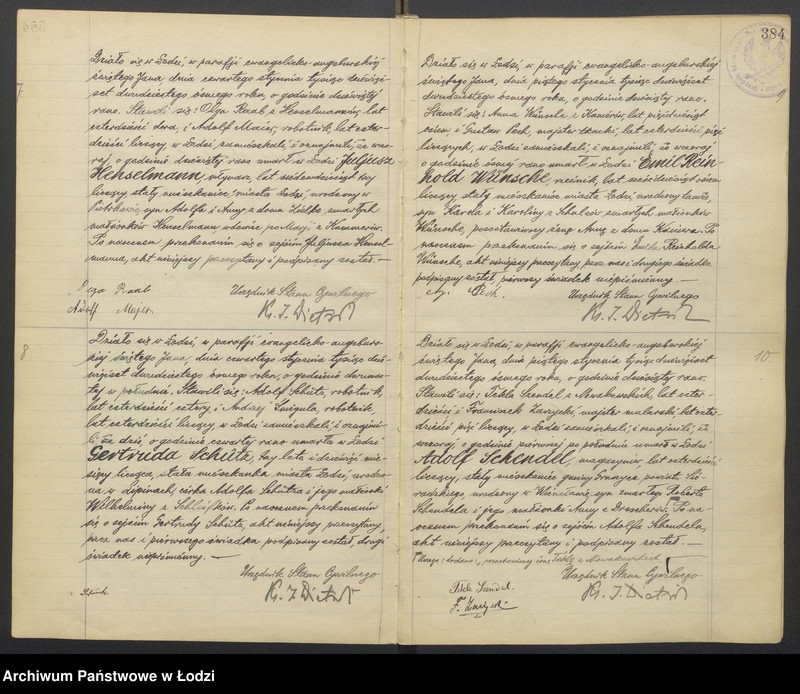 384
7
Działo się w Łodzi, w parafji ewangelicko-augsburskiej
świętego Jana, dnia czwartego stycznia tysiąc dziewięć-
set dwudziestego ósmego roku, o godzinie dziewiątej
rano. Stawili się: Olga Raab z Henselmannów, lat
czterdzieści dwa, i Adolf Majer, robotnik, lat czter-
dzieści liczący, w Łodzi zamieszkali, i oznajmili, że wczo-
raj, o godzinie dziewiątej rano umarł w Łodzi Juljusz
Henselmann, młynarz, lat siedemdziesiąt trzy
liczący stały mieszkaniec miasta Łodzi, urodzony w
Piotrkowie, syn Adolfa i Anny z domu Zielke zmarłych
małżonków Henselmann wdowiec po Marji z
Po naocznem przekonaniu się o zejściu Juljusza Hensel-
manna, akt niniejszy przeczytany i podpisany został. —
Olga Raab
Adolf Majer
Urzędnik Stanu Cywilnego
Ks. J. Dietrich
8
Działo się w Łodzi, w parafji ewangelicko-augsburs-
kiej świętego Jana, dnia czwartego stycznia tysiąc dzie-
więćset dwudziestego ósmego roku, o godzinie dwunas-
tej w południe. Stawili się: Adolf Schütz, robotnik,
lat czterdzieści cztery i Andrzej Śmiguła, robotnik,
lat czterdzieści liczący, w Łodzi zamieszkali, i oznajmi-
li, że dziś, o godzinie czwartej rano umarła w Łodzi
Gertruda Schütz, trzy lata i dziewięć mie-
sięcy licząca, stała mieszkanka miasta Łodzi, urodzo-
na w Lipinach, córka Adolfa Schütza i jego małżonki
Wilhelminy z Po naocznem przekonaniu
się o zejściu Gertrudy Schütz, akt niniejszy przeczytany,
przez nas i pierwszego świadka podpisany został, drugi
świadek niepiśmienny. —
Schütz
Urzędnik Stanu Cywilnego
Ks. J. Dietrich
9
Działo się w Łodzi, w parafji ewangelicko-augsburskiej
świętego Jana, dnia piątego stycznia tysiąc dziewięćset
dwudziestego ósmego roku, o godzinie dziewiątej rano.
Stawili się: Anna Wünsche z lat pięćdziesiąt
osiem i Gustaw Pech, majster tkacki, lat czterdzieści pięć
liczących, w Łodzi zamieszkali, i oznajmili, że wczoraj
o godzinie ósmej rano umarł w Łodzi Emil Rein-
hold Wünsche, rzeźnik, lat sześćdziesiąt osiem
liczący stały mieszkaniec miasta Łodzi urodzony tamże,
syn Karola i Karoliny z Schulców zmarłych małżonków
Wünsche, pozostawiwszy żonę Annę z domu Po
naocznem przekonaniu się o zejściu Emila Reinholda
Wünsche, akt niniejszy przeczytany, przez nas i drugiego świadka
podpisany został, pierwszy świadek niepiśmienny. —
Urzędnik Stanu Cywilnego
Ks. J. Dietrich
10
Działo się w Łodzi, w parafji ewangelicko-augsburskiej
świętego Jana, dnia piątego stycznia tysiąc dziewięćset
dwudziestego ósmego roku, o godzinie dziewiątej rano.
Stawili się: Tekla Szendel z Nowakowskich, lat czter-
dzieści i Franciszek Łarzycki, majster malarski, lat czter-
dzieści pięć liczący, w Łodzi zamieszkali, i oznajmili, że
wczoraj, o godzinie pierwszej po południu umarł w Łodzi
Adolf Schendel, magazynier, lat czterdzieści
liczący, stały mieszkaniec gminy powiatu Sie-
radzkiego urodzony w syn zmarłego Roberta
Schendela i jego małżonki Anny z Po na-
ocznem przekonaniu się o zejściu Adolfa Schendela,
akt niniejszy przeczytany i podpisany został. —
Uwaga: dodano: "pozostawiwszy żonę Teklę z Nowakowskich"
Tekla Szendel
Urzędnik Stanu Cywilnego
Ks. J. Dietrich
Archiwum Państwowe w Łodzi